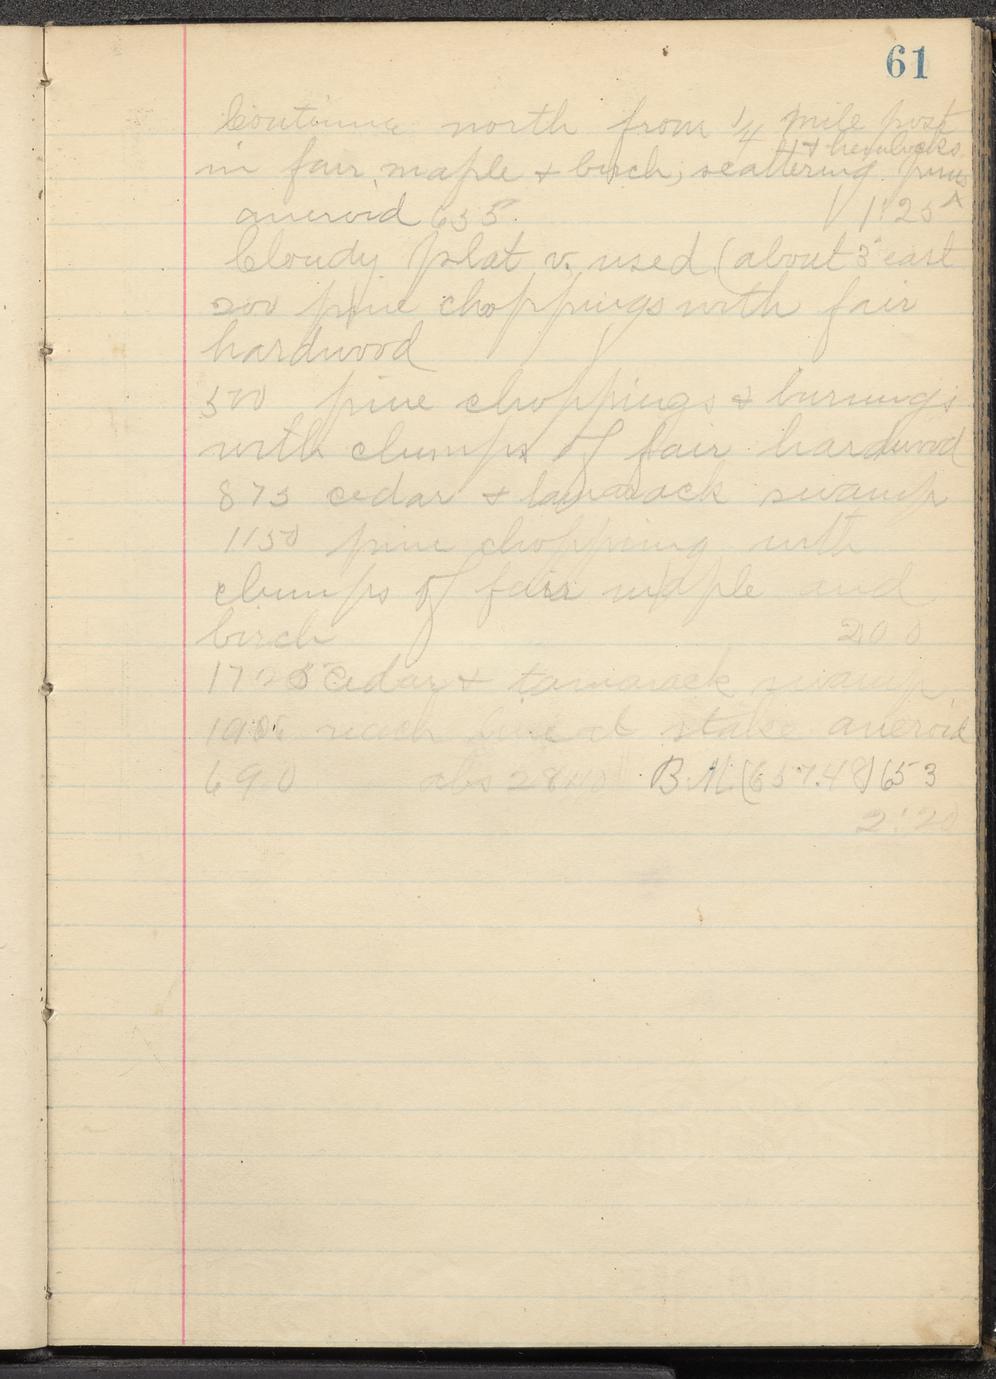 61
Continue north from 1/4 mile post
in fair maple & birch, scattering pines ^ & hemlocks
aneroid 635. 1:25
Cloudy plat v. used (about 3° east
200 pine choppings with fair
hardwood
500 pine choppings & burnings
with clumps of fair hardwood
875 cedar & tamarack swamp
1150 pine chopping with
clumps of fair maple and
birch 200
1725 cedar & tamarack swamp
reach line at stake aneroid
690 abs B.M. (657.48) 653
2:20